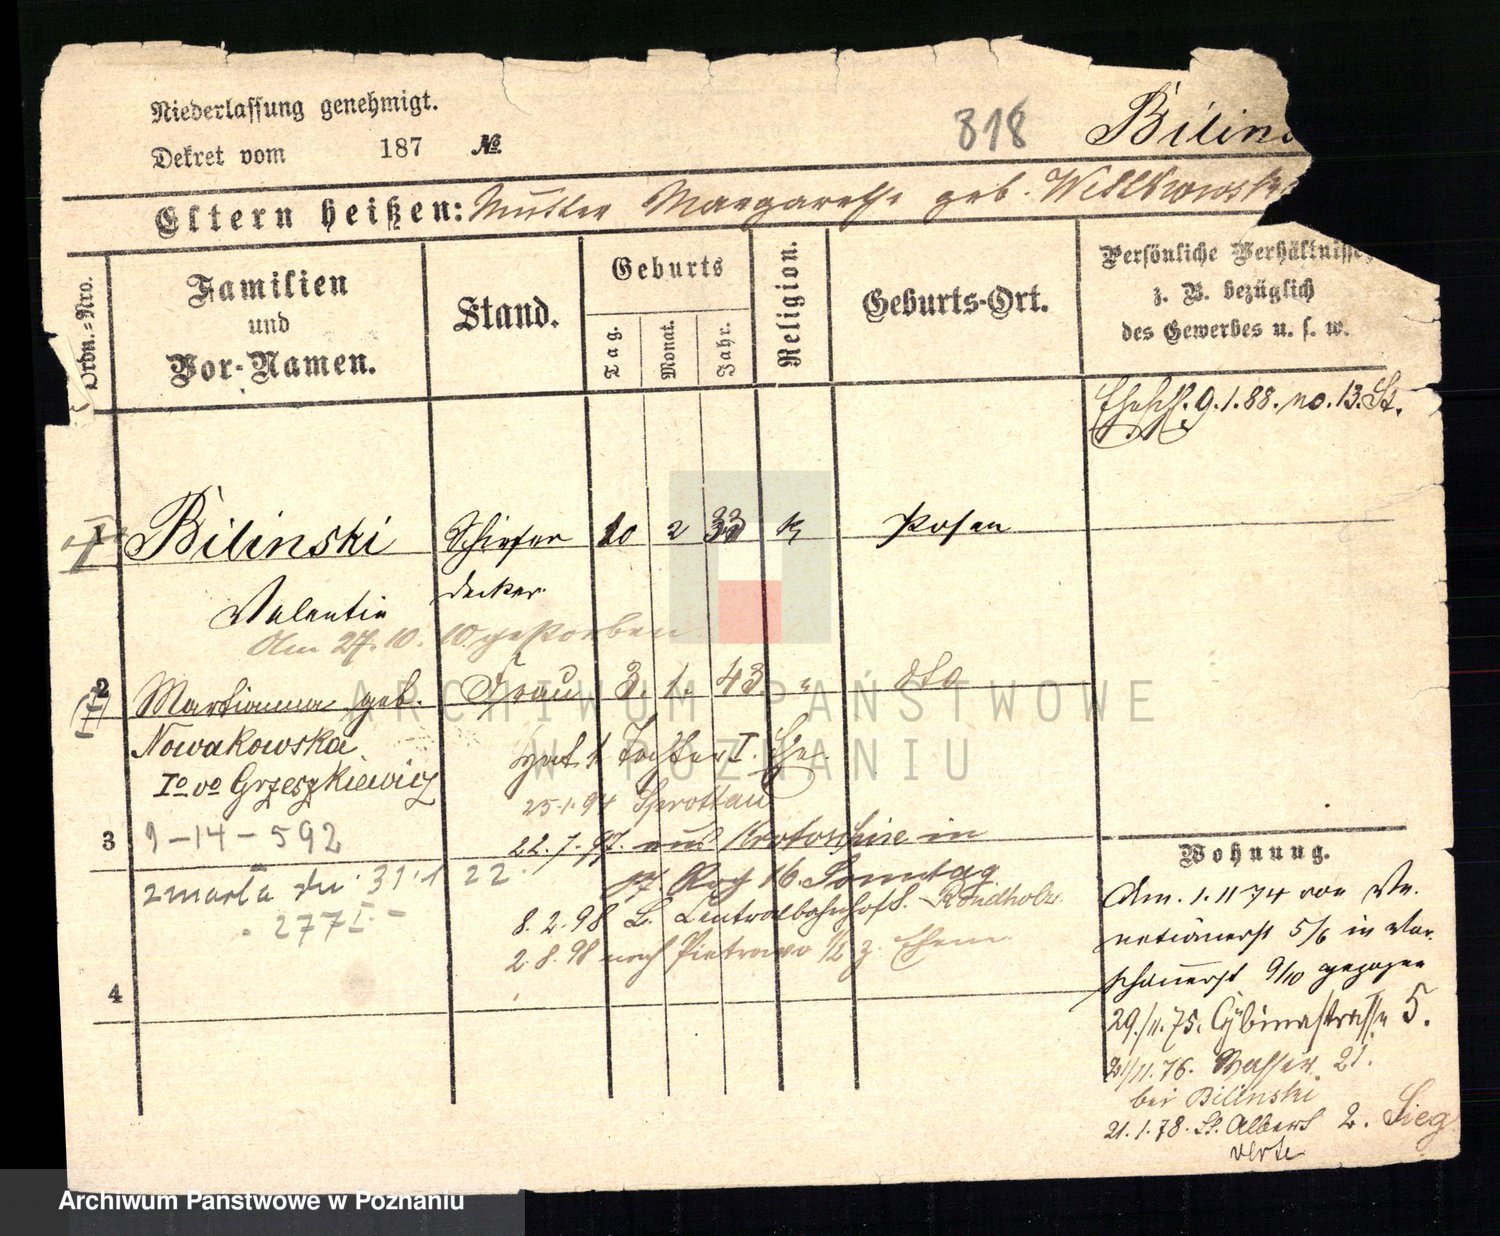 Niederlassung genehmigt.
Dekret vom 187 No.
818
Bilins
Eltern heißen: Mutter Margarethe geb. Wittkowsk
Ordn.-Nro.
Familien und Vor-Namen.
Stand.
Geburts
Tag. Monat. Jahr.
Religion.
Geburts-Ort.
Persönliche Verhältnisse
z. B. bezüglich
des Gewerbes u. s. w.
Ehesch. 9.1.88. no. 13. St.
Bilinski Schiefer 10 2 33 K Posen
Valentin decker.
Am 27.10.10. gestorben
2 Marianna geb. Frau 3. 1. 43. " dto
Nowakowska Hat 1 Tochter I. Ehe.
Io vo Grzeszkiewicz
25.1.94 Sprottau
3 9-14-592 22.7.97. aus Krotoschin in
zmarła dn. 31.1 22. 16. Sonntag
277 I - 8.2.98 Centralbahnhofs. Rondholz
2.8.98 nach Pietrowo
4
Wohnung.
Am. 1.11 74 von Ve-
netianerst 5/6 in War-
schauerst 9/10 gezogen
29./11.75. Cybinastrasse 5.
21/11.76. Wasser. 21.
bei Bilinski
21.1.78. St. Albert 2. Sieg
verte
ARCHIWUM PAŃSTWOWE
W POZNANIU
Archiwum Państwowe w Poznaniu